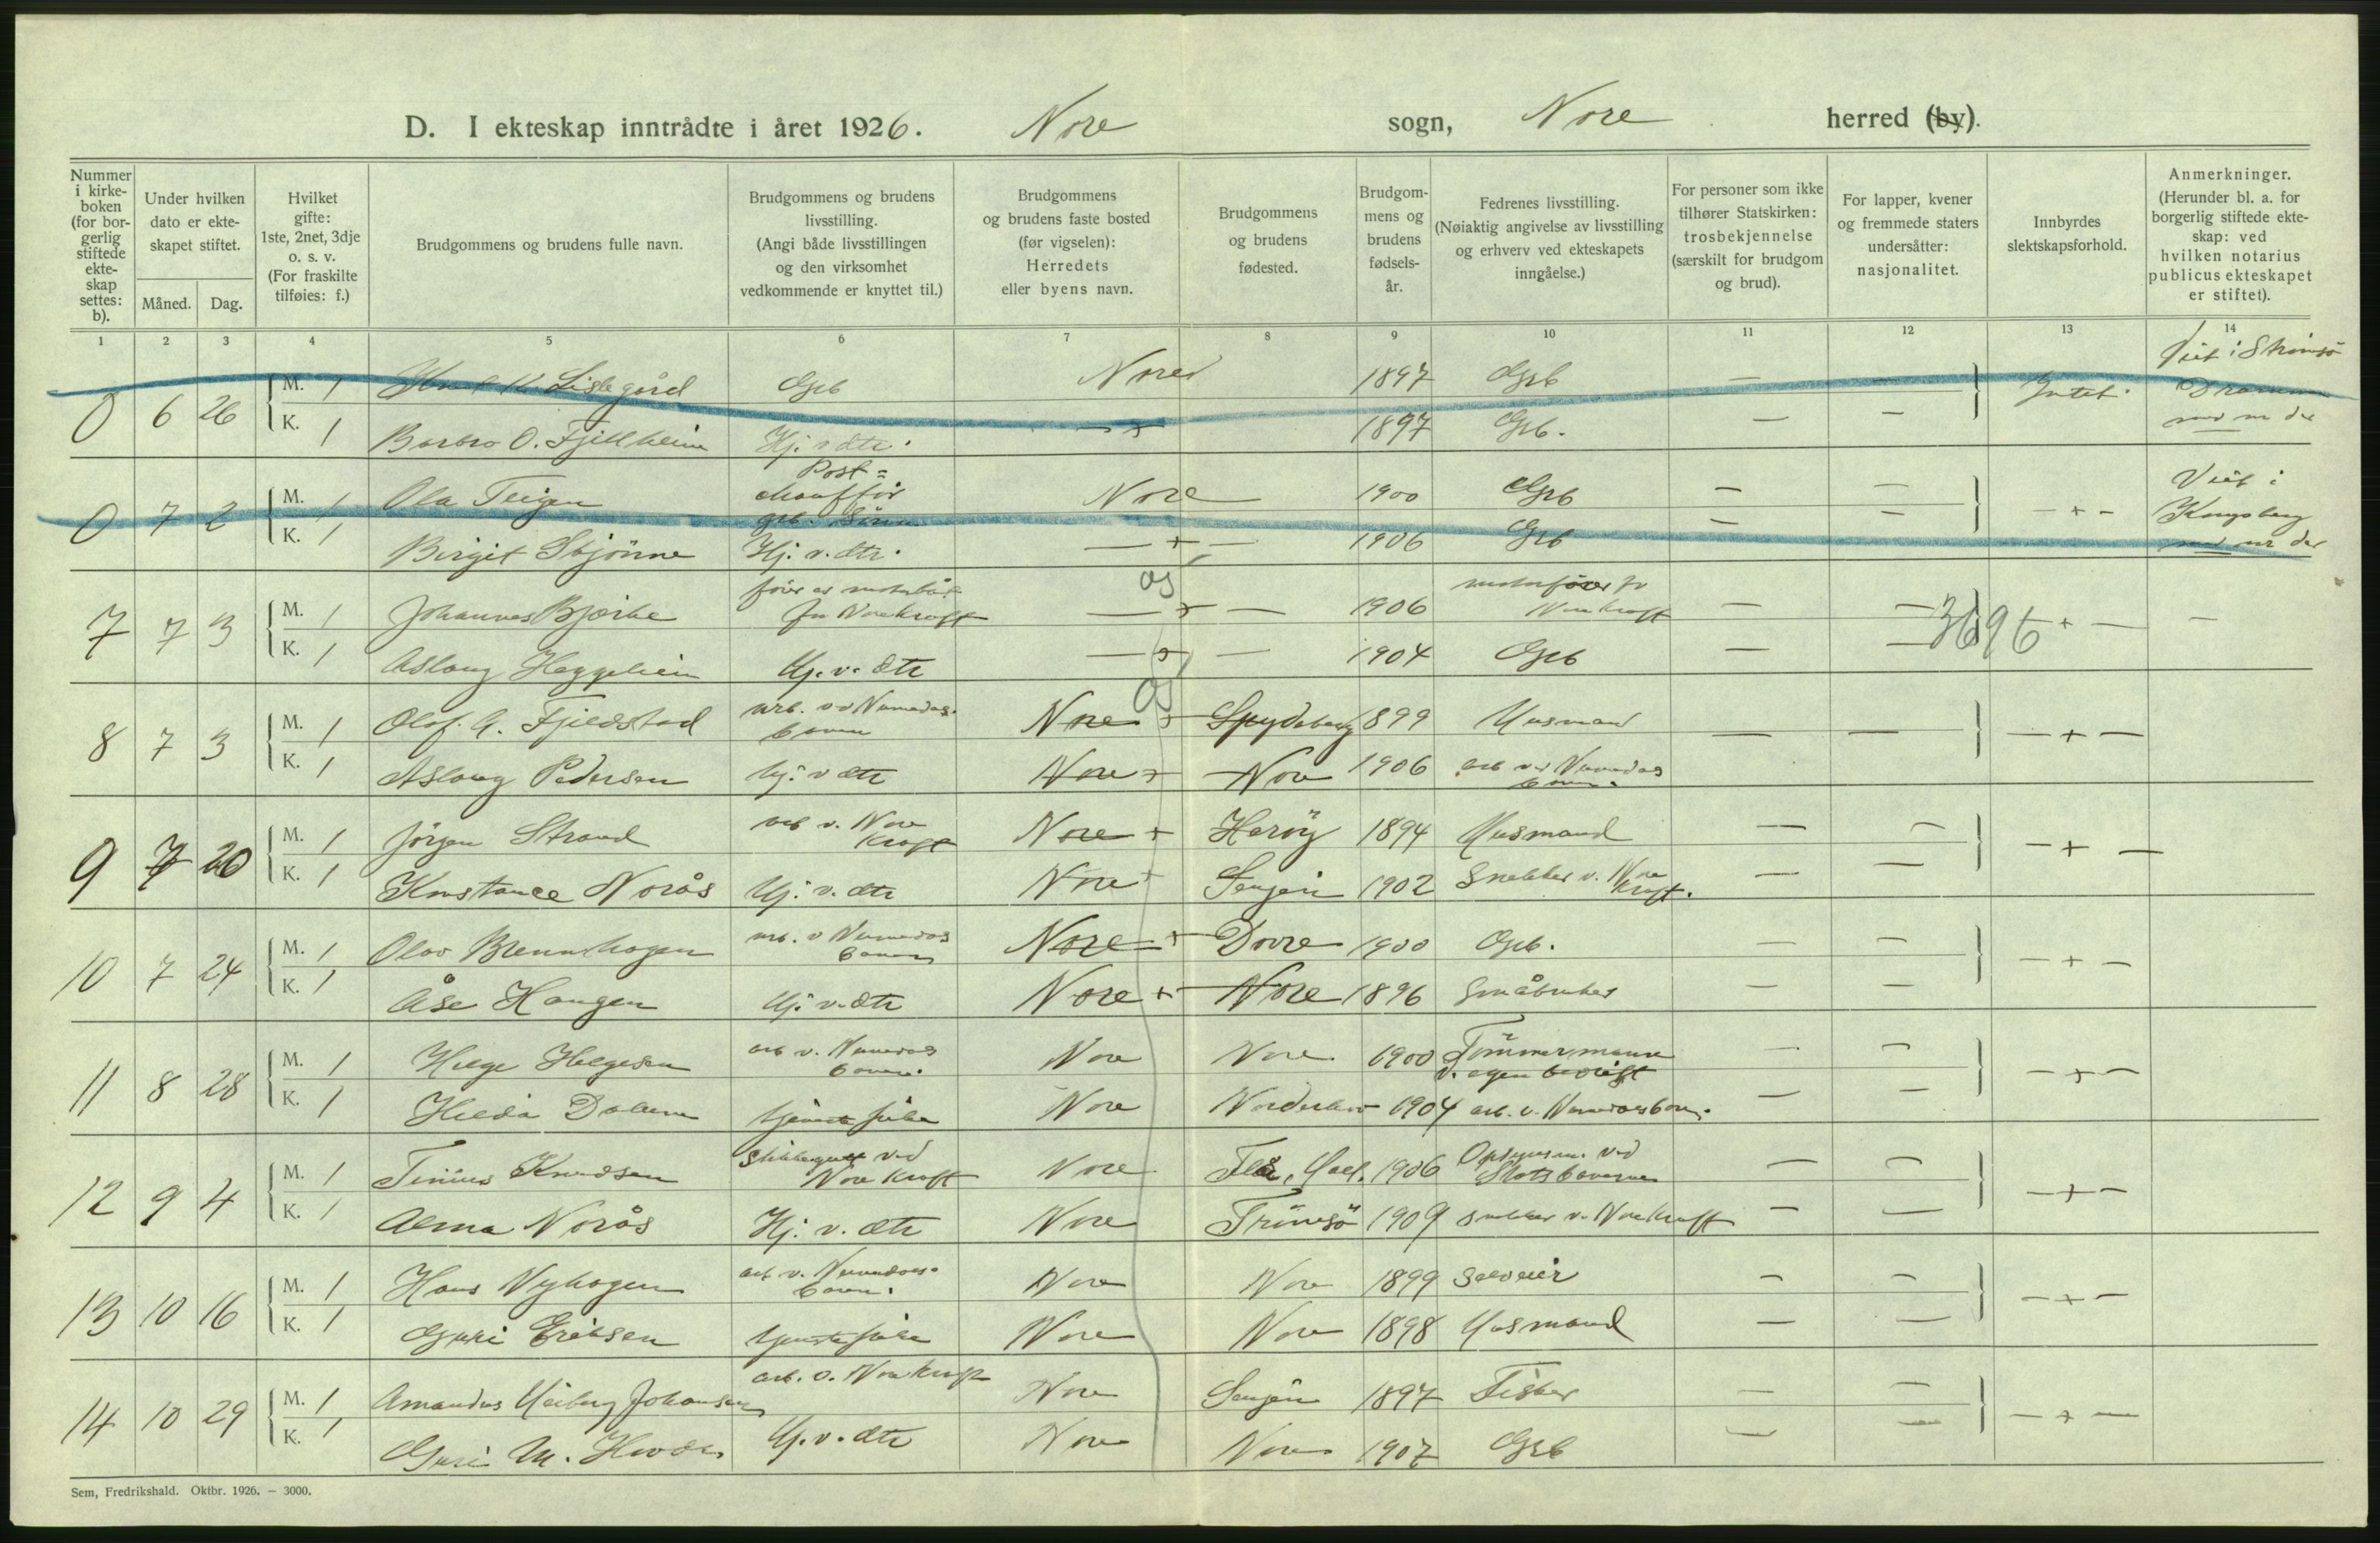 D. I ekteskap inntrådte i året 1926. Nore sogn, Nore herred (by).
Nummer i kirke-boken (for bor-gerlig stiftede ekte-skap settes: b).
Under hvilken dato er ekte-skapet stiftet.
Måned. Dag.
Hvilket gifte: 1ste, 2net, 3dje o. s. v. (For fraskilte tilføies: f.)
Brudgommens og brudens fulle navn.
Brudgommens og brudens livsstilling. (Angi både livsstillingen og den virksomhet vedkommende er knyttet til.)
Brudgommens og brudens faste bosted (før vigselen): Herredets eller byens navn.
Brudgommens og brudens fødested.
Brudgom-mens og brudens fødsels-år.
Fedrenes livsstilling. (Nøiaktig angivelse av livsstilling og erhverv ved ekteskapets inngåelse.)
For personer som ikke tilhører Statskirken: trosbekjennelse (særskilt for brudgom og brud).
For lapper, kvener og fremmede staters undersåtter: nasjonalitet.
Innbyrdes slektskapsforhold.
Anmerkninger. (Herunder bl. a. for borgerlig stiftede ekte-skap: ved hvilken notarius publicus ekteskapet er stiftet).
1 2 3 4 5 6 7 8 9 10 11 12 13 14
0 6 26 M. 1 Lislegård Grb Nore 1897 Grb — — Intet. Viet i Strømsø
K. 1 Barbro O. Fjellheim Hj. v. dtr. — + 1897 Grb. — —
0 7 2 M. 1 Ola Teigen Post-chauffør Nore 1900 Grb — — — + — Viet i Kongsberg
K. 1 Birgit Skjönne Hj. v. dtr. — + — 1906 Grb — —
7 7 3 M. 1 Johannes Bjerke Nore kraft — + — 1906 Nore kraft — — 3696 + — —
K. 1 Aslaug Heggelien Hj. v. dtr — + — 1904 Grb — —
8 7 3 M. 1 Olaf G. Fjeldstad arb. v Numedals-banen Nore + Spydeberg 1899 Husmand — — — + —
K. 1 Aslaug Pedersen Hj. v dtr Nore + Nore 1906 arb v. Numedalsbanen
9 7 20 M. 1 Jörgen Strand arb v. Nore Kraft Nore + Heröy 1894 Husmand — — — + —
K. 1 Konstance Norås Hj. v. dtr Nore + Senjen 1902 Snekker v. Nore Kraft. — —
10 7 24 M. 1 Olav Brennhagen arb. v Numedalsbanen Nore + Dovre 1900 Grb. — — — + —
K. 1 Åse Haugen Hj. v. dtr Nore + Nore 1896 Småbruker — —
11 8 28 M. 1 Helge Helgesen arb v. Numedalsbanen. Nore Nore 1900 Tömmermann v. egen bedrift — — — + —
K. 1 Hilda Dalene tjenestepike Nore Norderhov 1904 arb. v. Numedalsbanen. — —
12 9 4 M. 1 Tinius Knudsen Stikkegutt ved Nore Kraft Nore Flå, Hall. 1906 Opsynsm. ved Statsbanerne — — — + —
K. 1 Alma Norås Hj. v. dtr Nore Trömsö 1909 snekker v. Nore Kraft — —
13 10 16 M. 1 Hans Nyhagen arb v. Numedals-banen. Nore Nore 1899 Selveier — — — + —
K. 1 Guri Eriksen tjenestepike Nore Nore 1898 Husmand — —
14 10 29 M. 1 Amandus Johansen arb. v. Nore kraft Nore Senjen 1897 Fisker — — — + —
K. 1 Guri M. Hj. v. dtr Nore Nore 1907 Grb — —
Sem, Fredrikshald. Oktbr. 1926. – 3000.